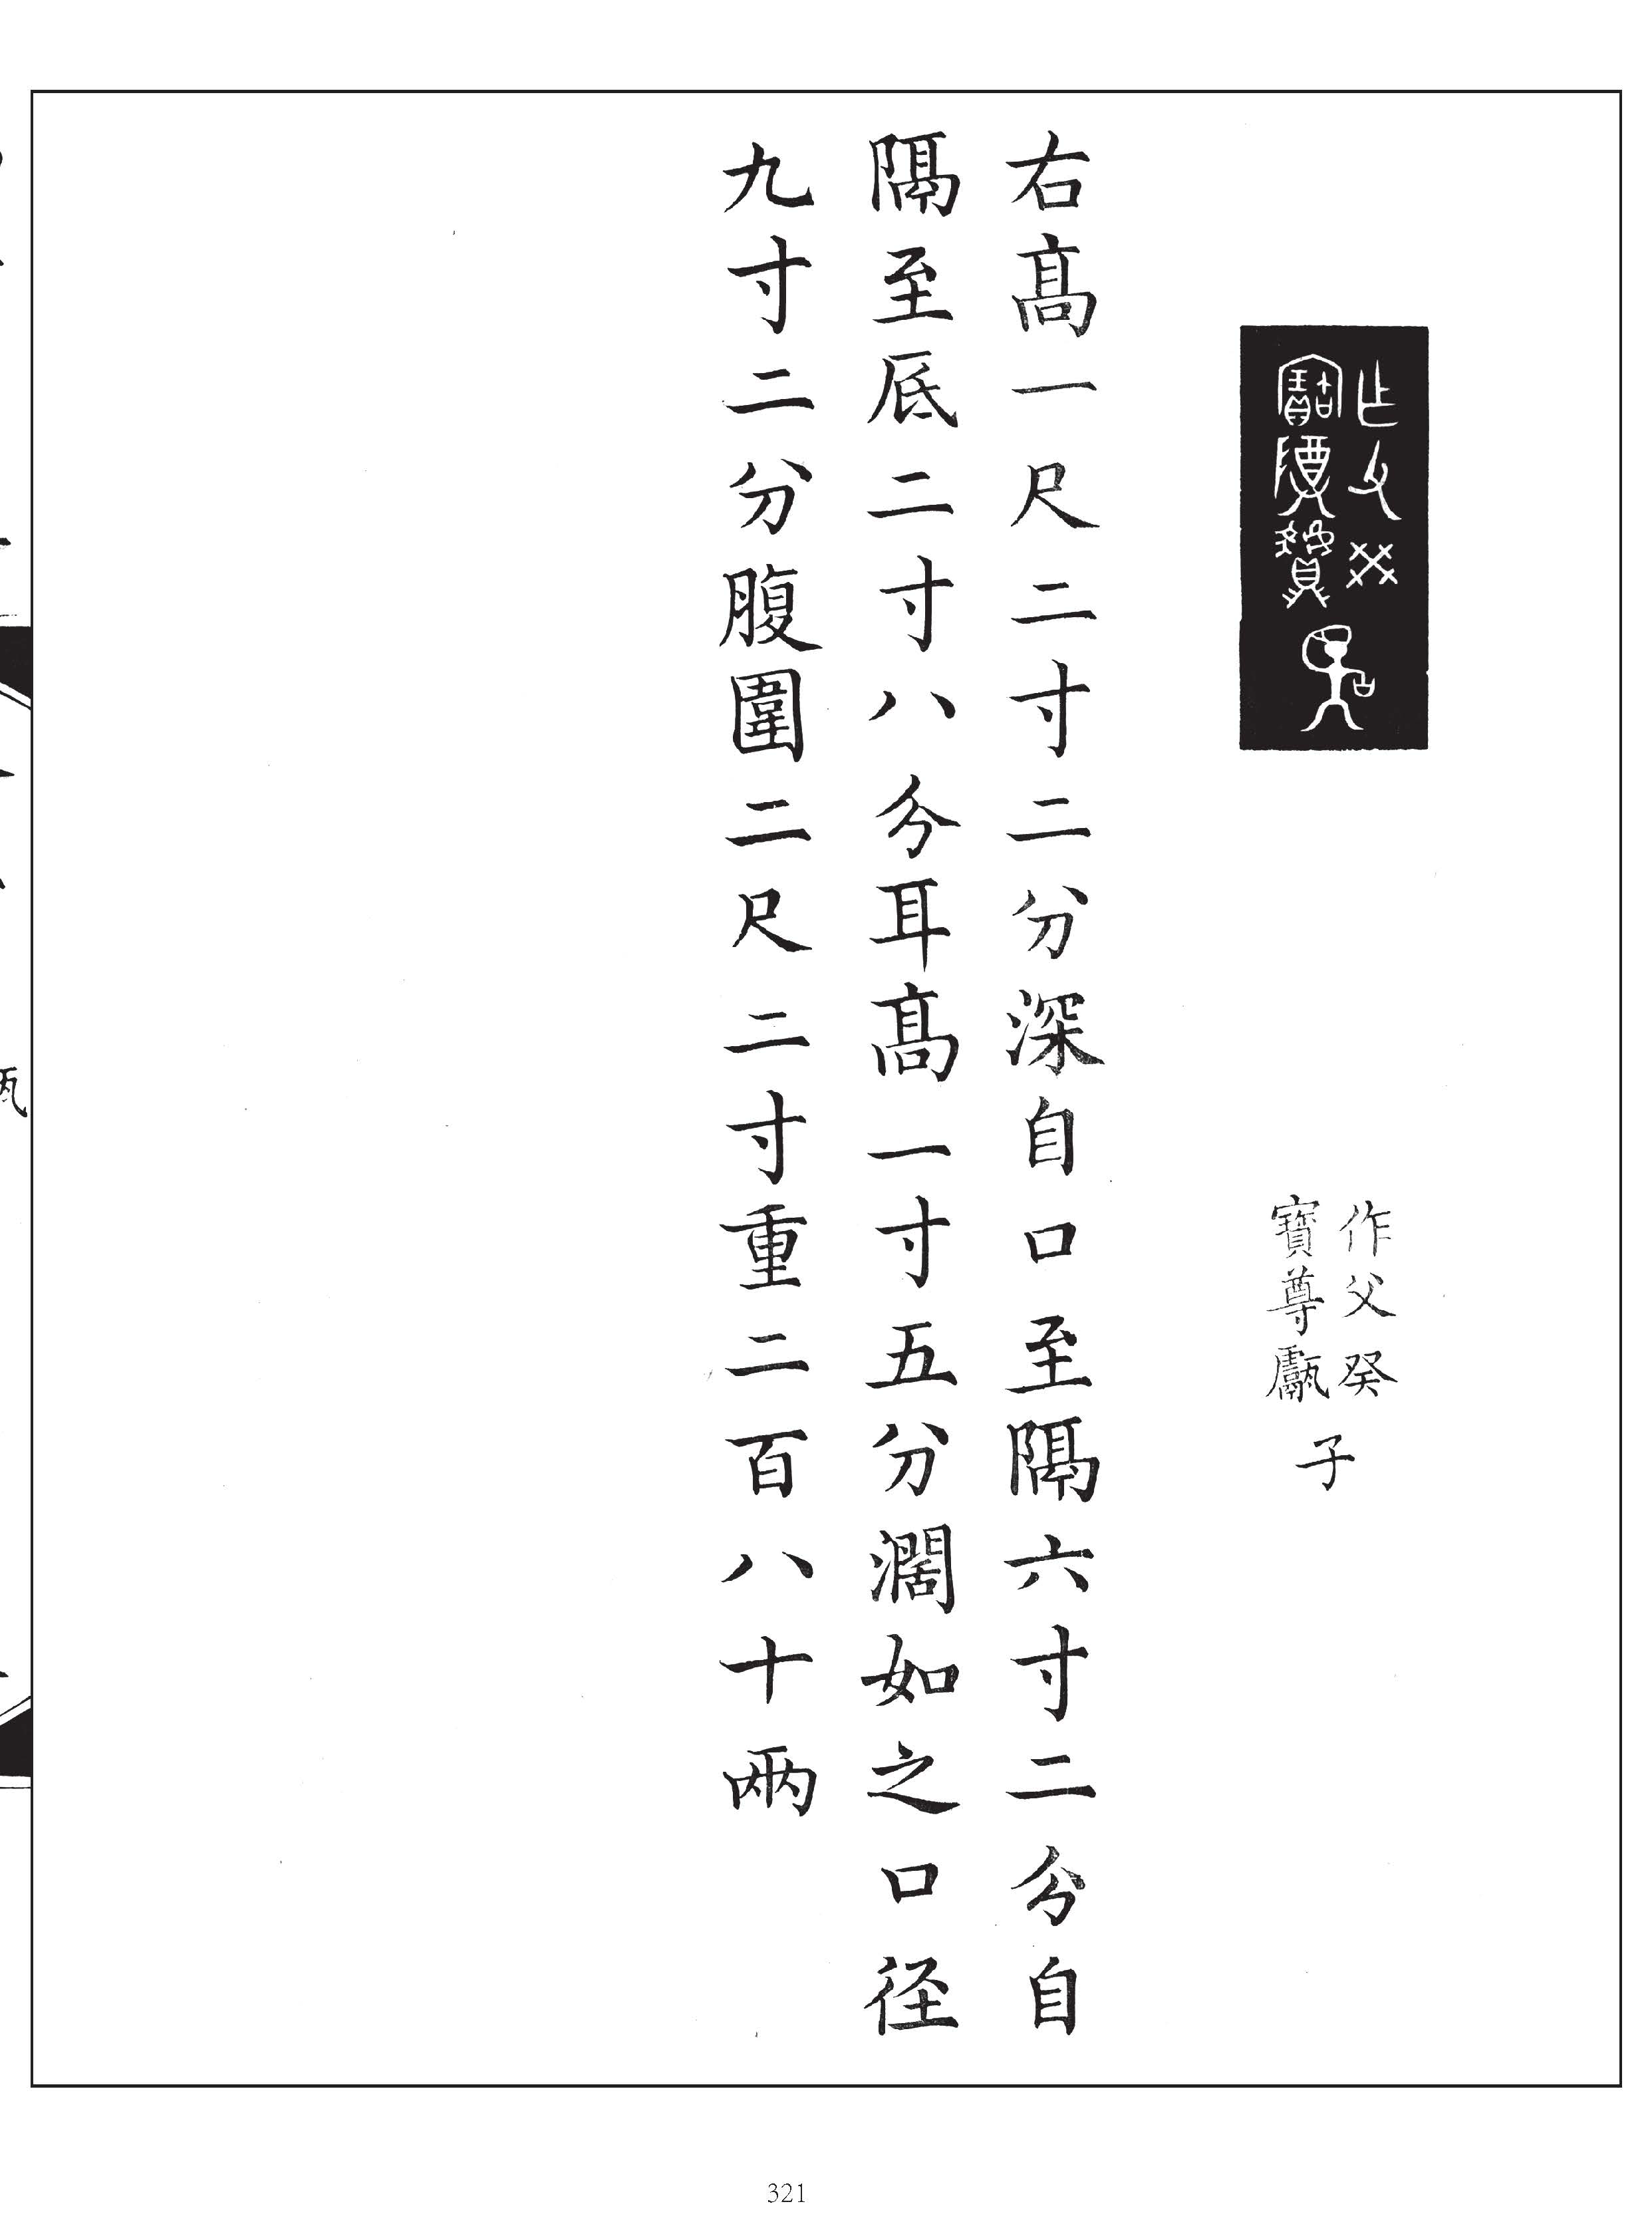 作父癸
寶尊甗
子
右高一尺二寸二分深自口至隔六寸二分自
隔至底二寸八分耳高一寸五分濶如之口径
九寸二分腹圍二尺二寸重二百八十兩
321